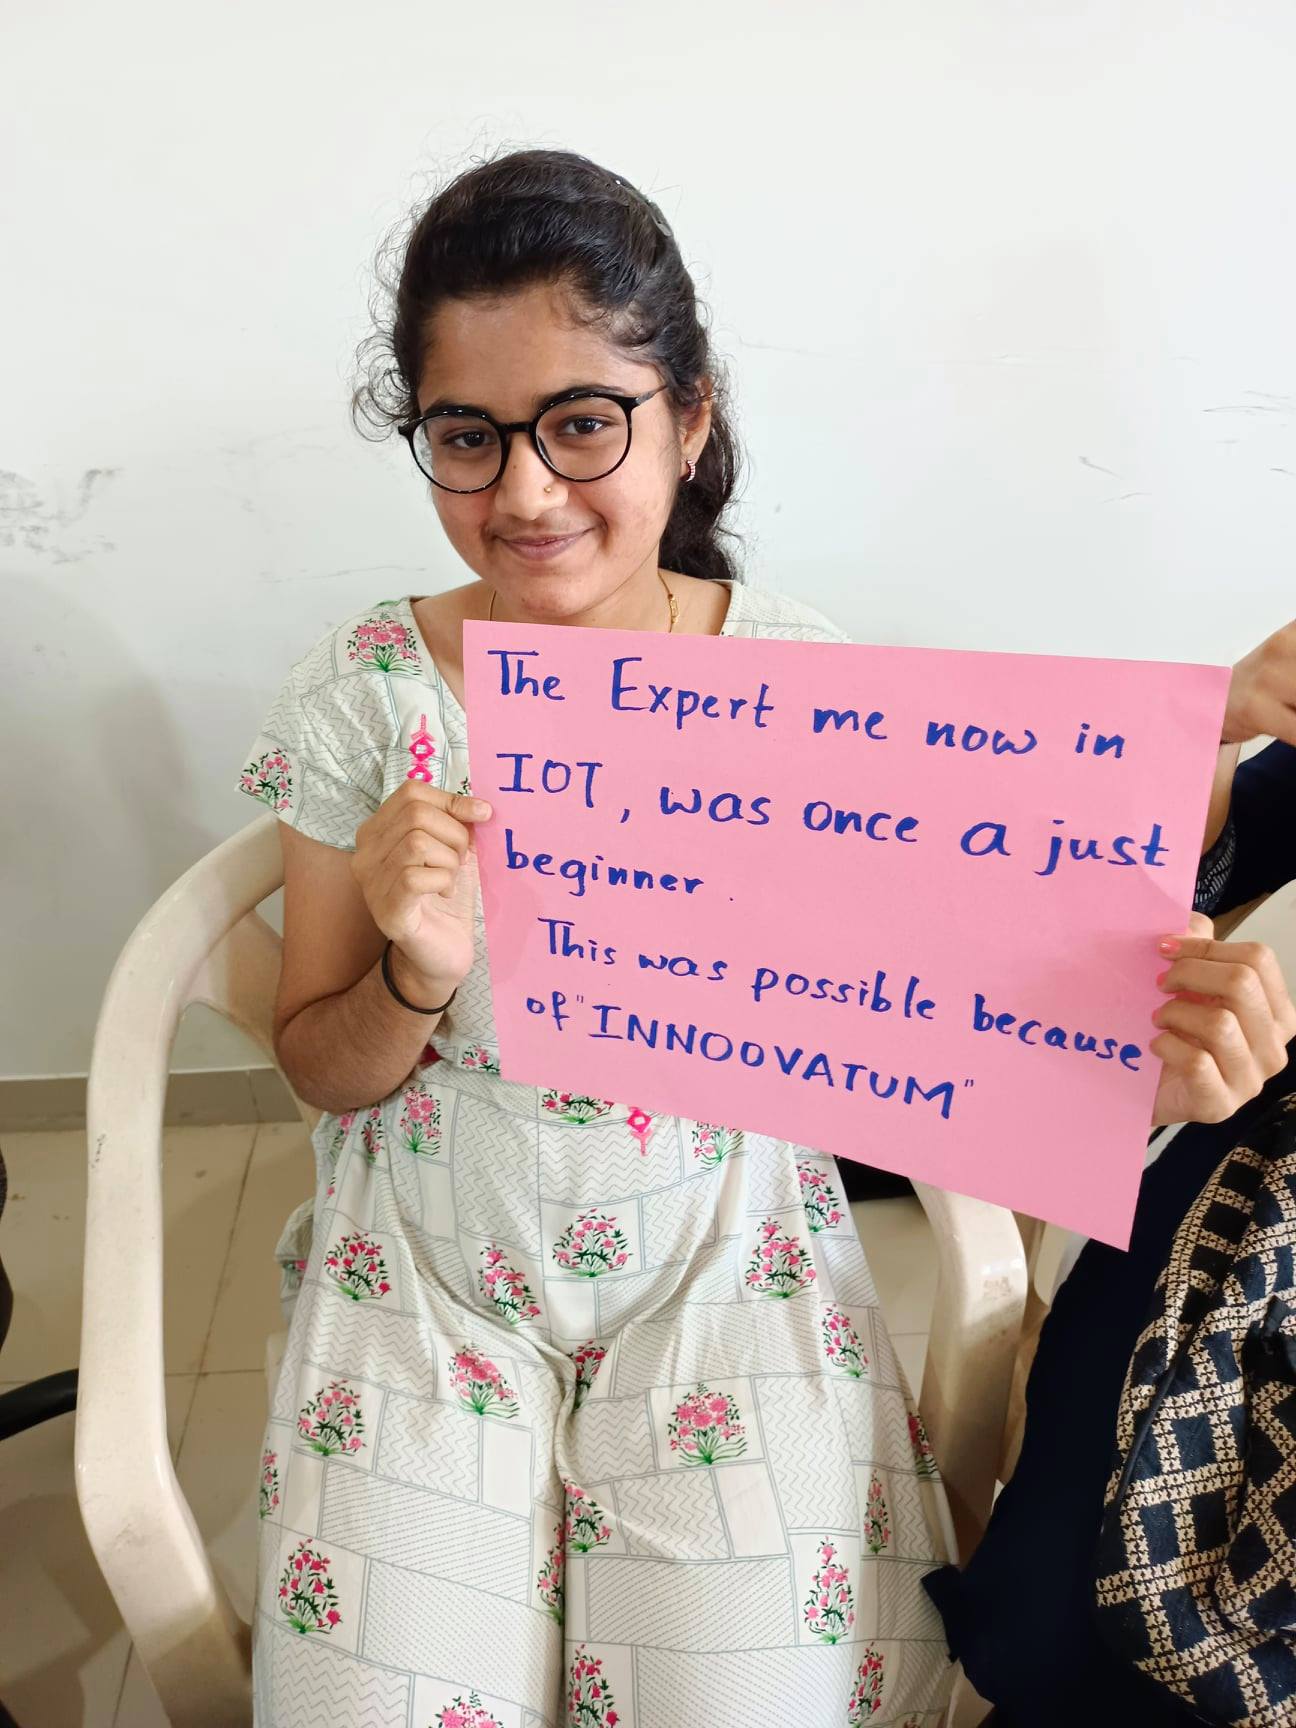 The Expert me now in
IOT, was once a just
beginner.
This was possible because
of "INNOOVATUM"